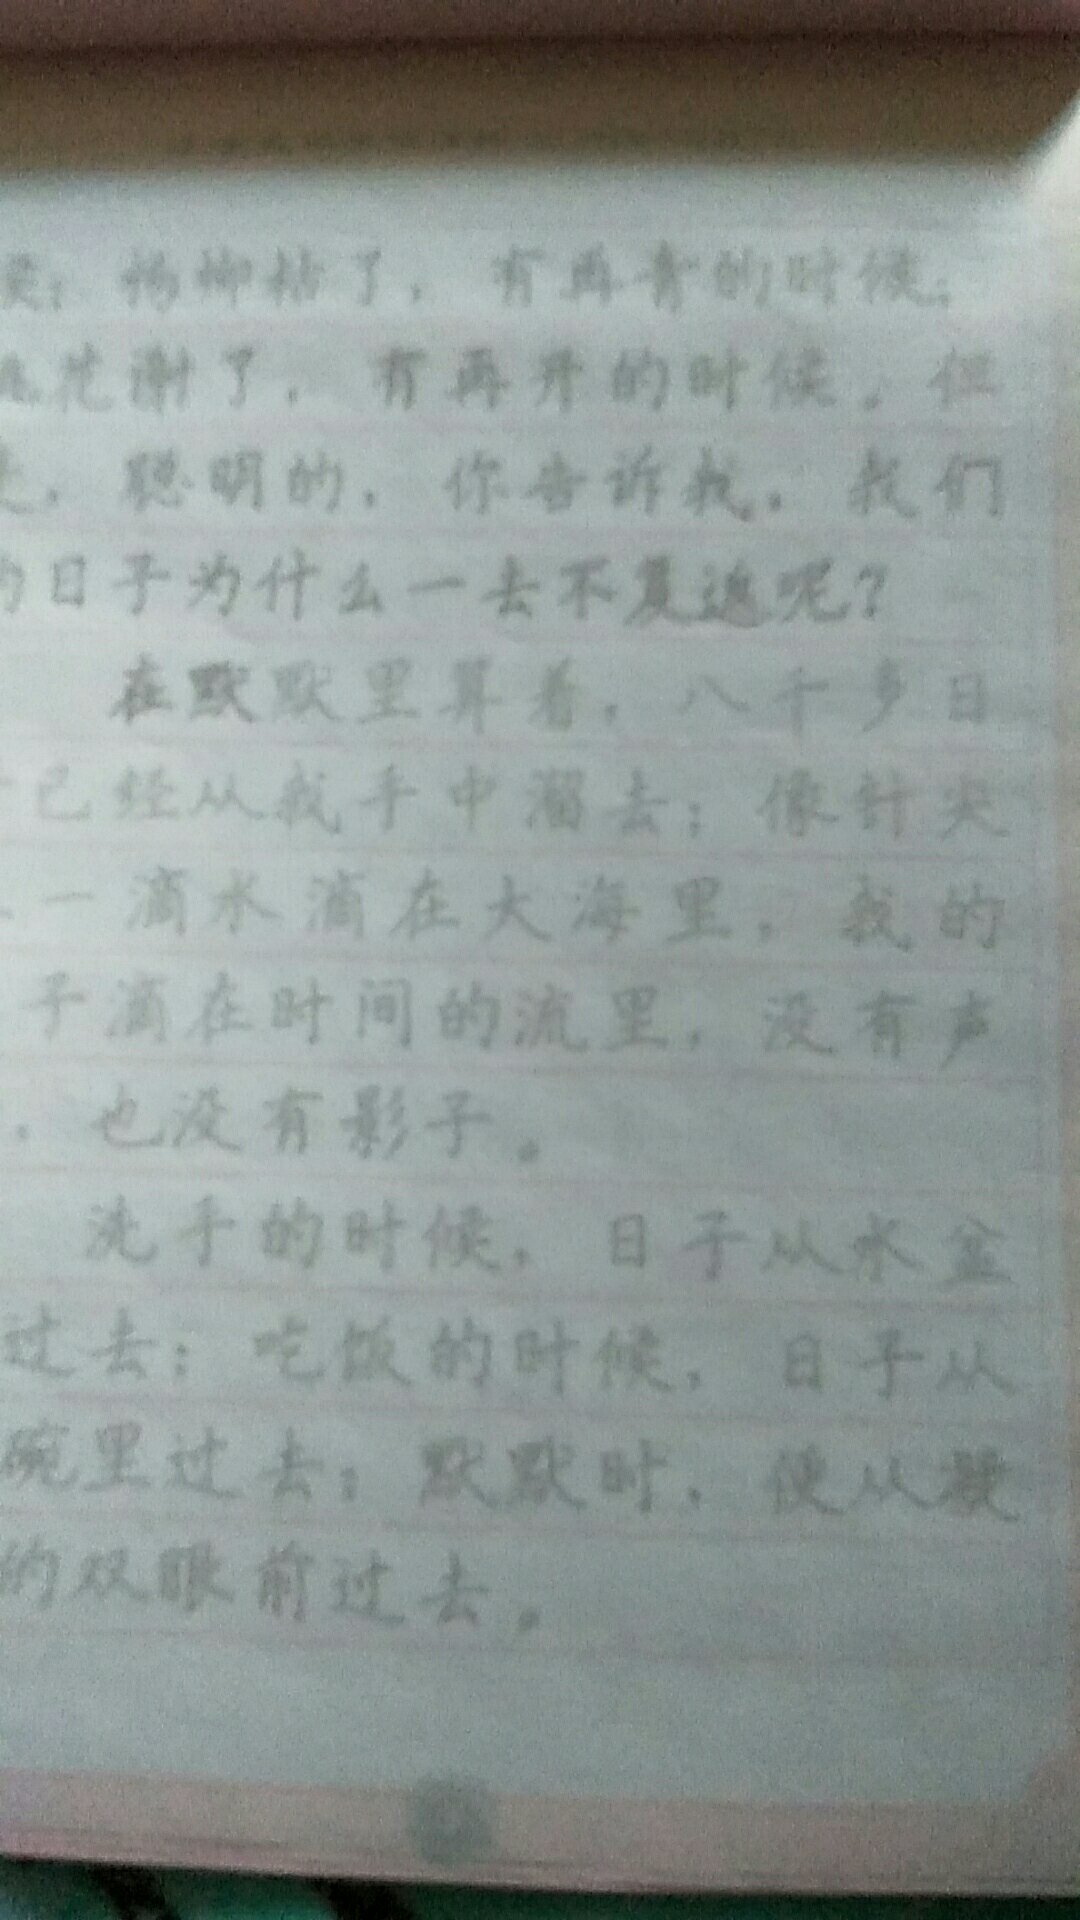 候；杨柳枯了，有再青的时候；
桃花谢了，有再开的时候。但
是，聪明的，你告诉我，我们
的日子为什么一去不复返呢？
在默默里算着，八千多日
已经从我手中溜去；像针尖
一滴水滴在大海里，我的
子滴在时间的流里，没有声
，也没有影子。
洗手的时候，日子从水盆
过去；吃饭的时候，日子从
碗里过去；默默时，便从凝
的双眼前过去。